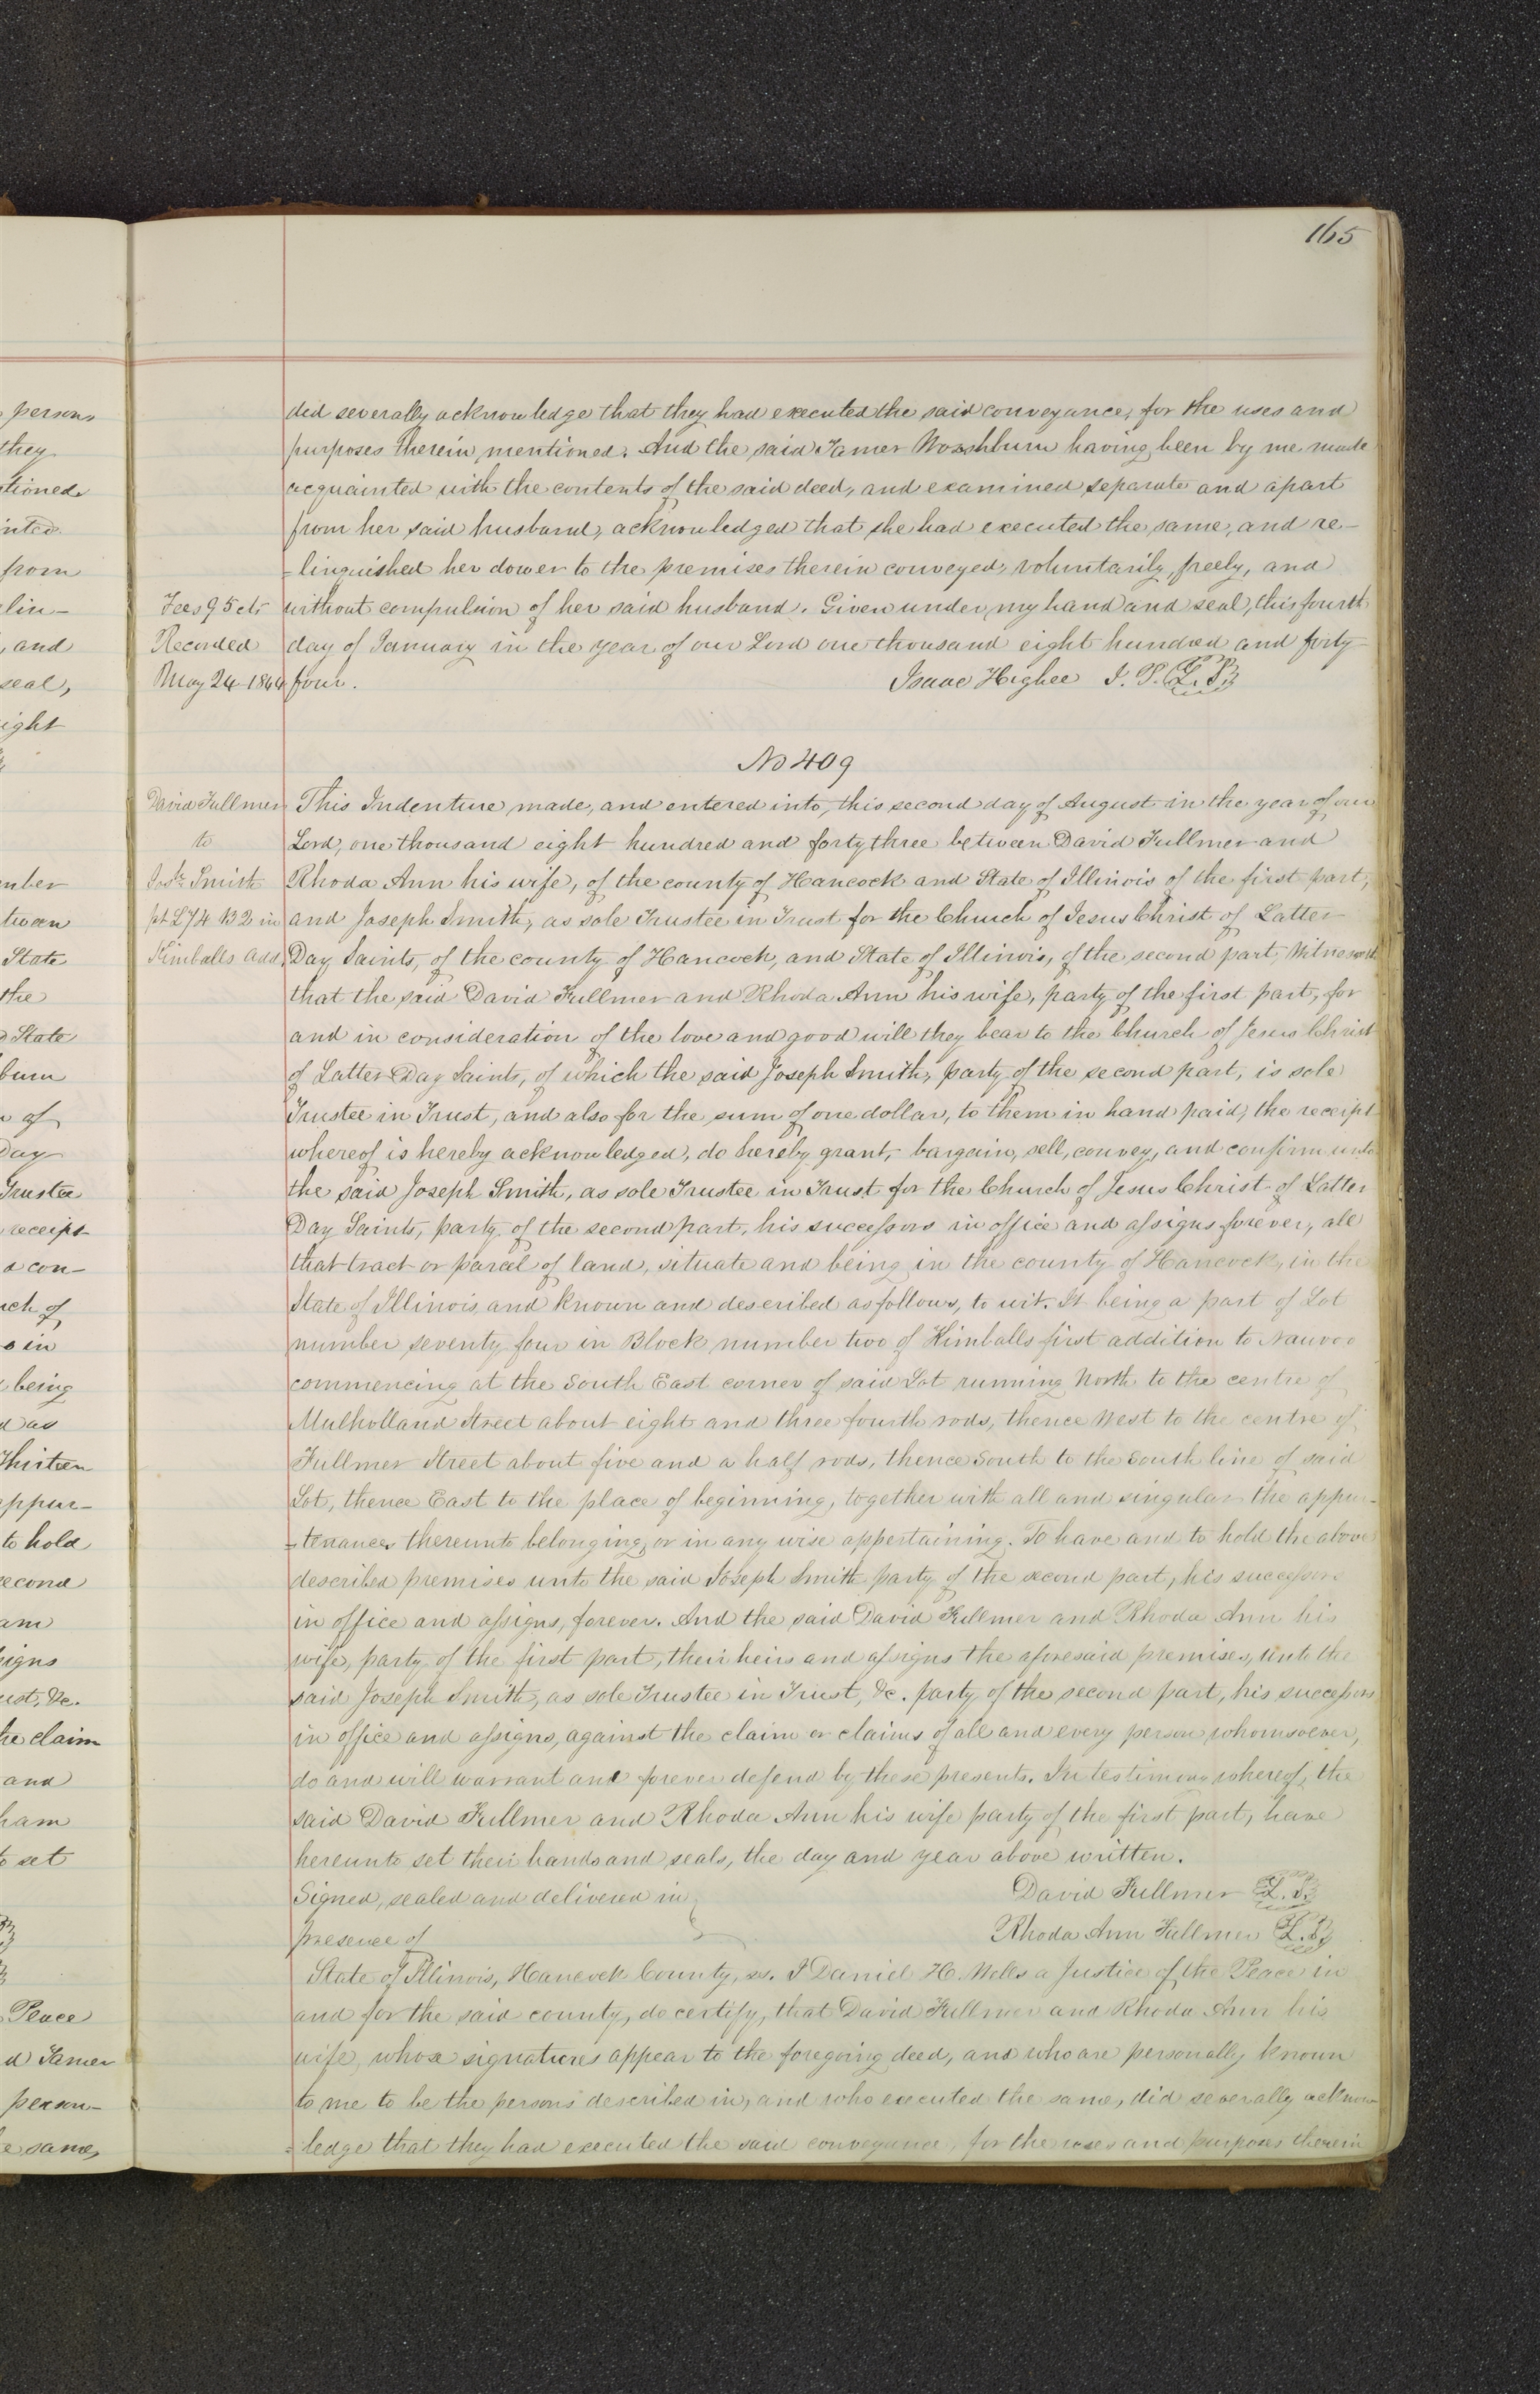 165
persons
they
tioned
inted
from
elin-
, and
seal,
ight
mber
tween
State
the
State
burn
of
Day
Trustee
receipt
s con-
rch of
s in
being
d as
Thirteen
appur-
to hold
second
am
signs
ust, &c.
he claim
and
ham
to set
Peace
d Tamer
person-
e same,
did severally acknowledge that they had executed the said conveyance, for the uses and
purposes therein mentioned. And the said Tamer Washburn having been by me made
acquainted with the contents of the said deed, and examined separate and apart
from her said husband, acknowledged that she had executed the same, and re-
-linquished her dower to the premises therein conveyed, voluntarily, freely, and
Fees 95 cts without compulsion of her said husband. Given under my hand and seal, this fourth
Recorded day of January in the year of our Lord one thousand eight hundred and forty
May 24 1844 four. Isaac Higbee J. P. L. S.
No 409
David Fullmer This Indenture made, and entered into, this second day of August in the year of our
to Lord, one thousand eight hundred and forty three between David Fullmer and
Josh Smith Rhoda Ann his wife, of the county of Hancock and State of Illinois of the first part,
pt L 74 B 2 in and Joseph Smith, as sole Trustee in Trust for the Church of Jesus Christ of Latter
Kimballs Add. Day Saints, of the county of Hancock, and State of Illinois, of the second part, Witnesseth
that the said David Fullmer and Rhoda Ann his wife, party of the first part, for
and in consideration of the love and good will they bear to the Church of Jesus Christ
of Latter Day Saints, of which the said Joseph Smith, party of the second part, is sole
Trustee in Trust, and also for the sum of one dollar, to them in hand paid, the receipt
whereof is hereby acknowledged, do hereby grant, bargain, sell, convey, and confirm unto
the said Joseph Smith, as sole Trustee in Trust for the Church of Jesus Christ of Latter
Day Saints, party of the second part, his successors in office and assigns forever, all
that tract or parcel of land, situate and being in the county of Hancock, in the
State of Illinois, and known and described as follows, to wit. It being a part of Lot
number seventy four in Block number two of Kimballs first addition to Nauvoo
commencing at the South East corner of said Lot running North to the centre of
Mulholland Street about eight and three fourth rods, thence West to the centre of
Fullmer Street about five and a half rods, thence South to the South line of said
Lot, thence East to the place of beginning, together with all and singular the appur-
-tenances thereunto belonging, or in any wise appertaining. To have and to hold the above
described premises unto the said Joseph Smith party of the second part, his successors
in office and assigns, forever. And the said David Fullmer and Rhoda Ann his
wife, party of the first part, their heirs and assigns the aforesaid premises, unto the
said Joseph Smith, as sole Trustee in Trust, &c. party of the second part, his successors
in office and assigns, against the claim or claims of all and every person whomsoever,
do and will warrant and forever defend by these presents. In testimony whereof, the
said David Fullmer and Rhoda Ann his wife party of the first part, have
hereunto set their hands and seals, the day and year above written.
Signed, sealed and delivered in David Fullmer L. S.
presence of Rhoda Ann Fullmer L. S.
State of Illinois, Hancock County, ss. I Daniel H. Wells a Justice of the Peace in
and for the said county, do certify, that David Fullmer and Rhoda Ann his
wife, whose signatures appear to the foregoing deed, and who are personally known
to me to be the persons described in, and who executed the same, did severally acknow
-ledge that they had executed the said conveyance, for the uses and purposes therein